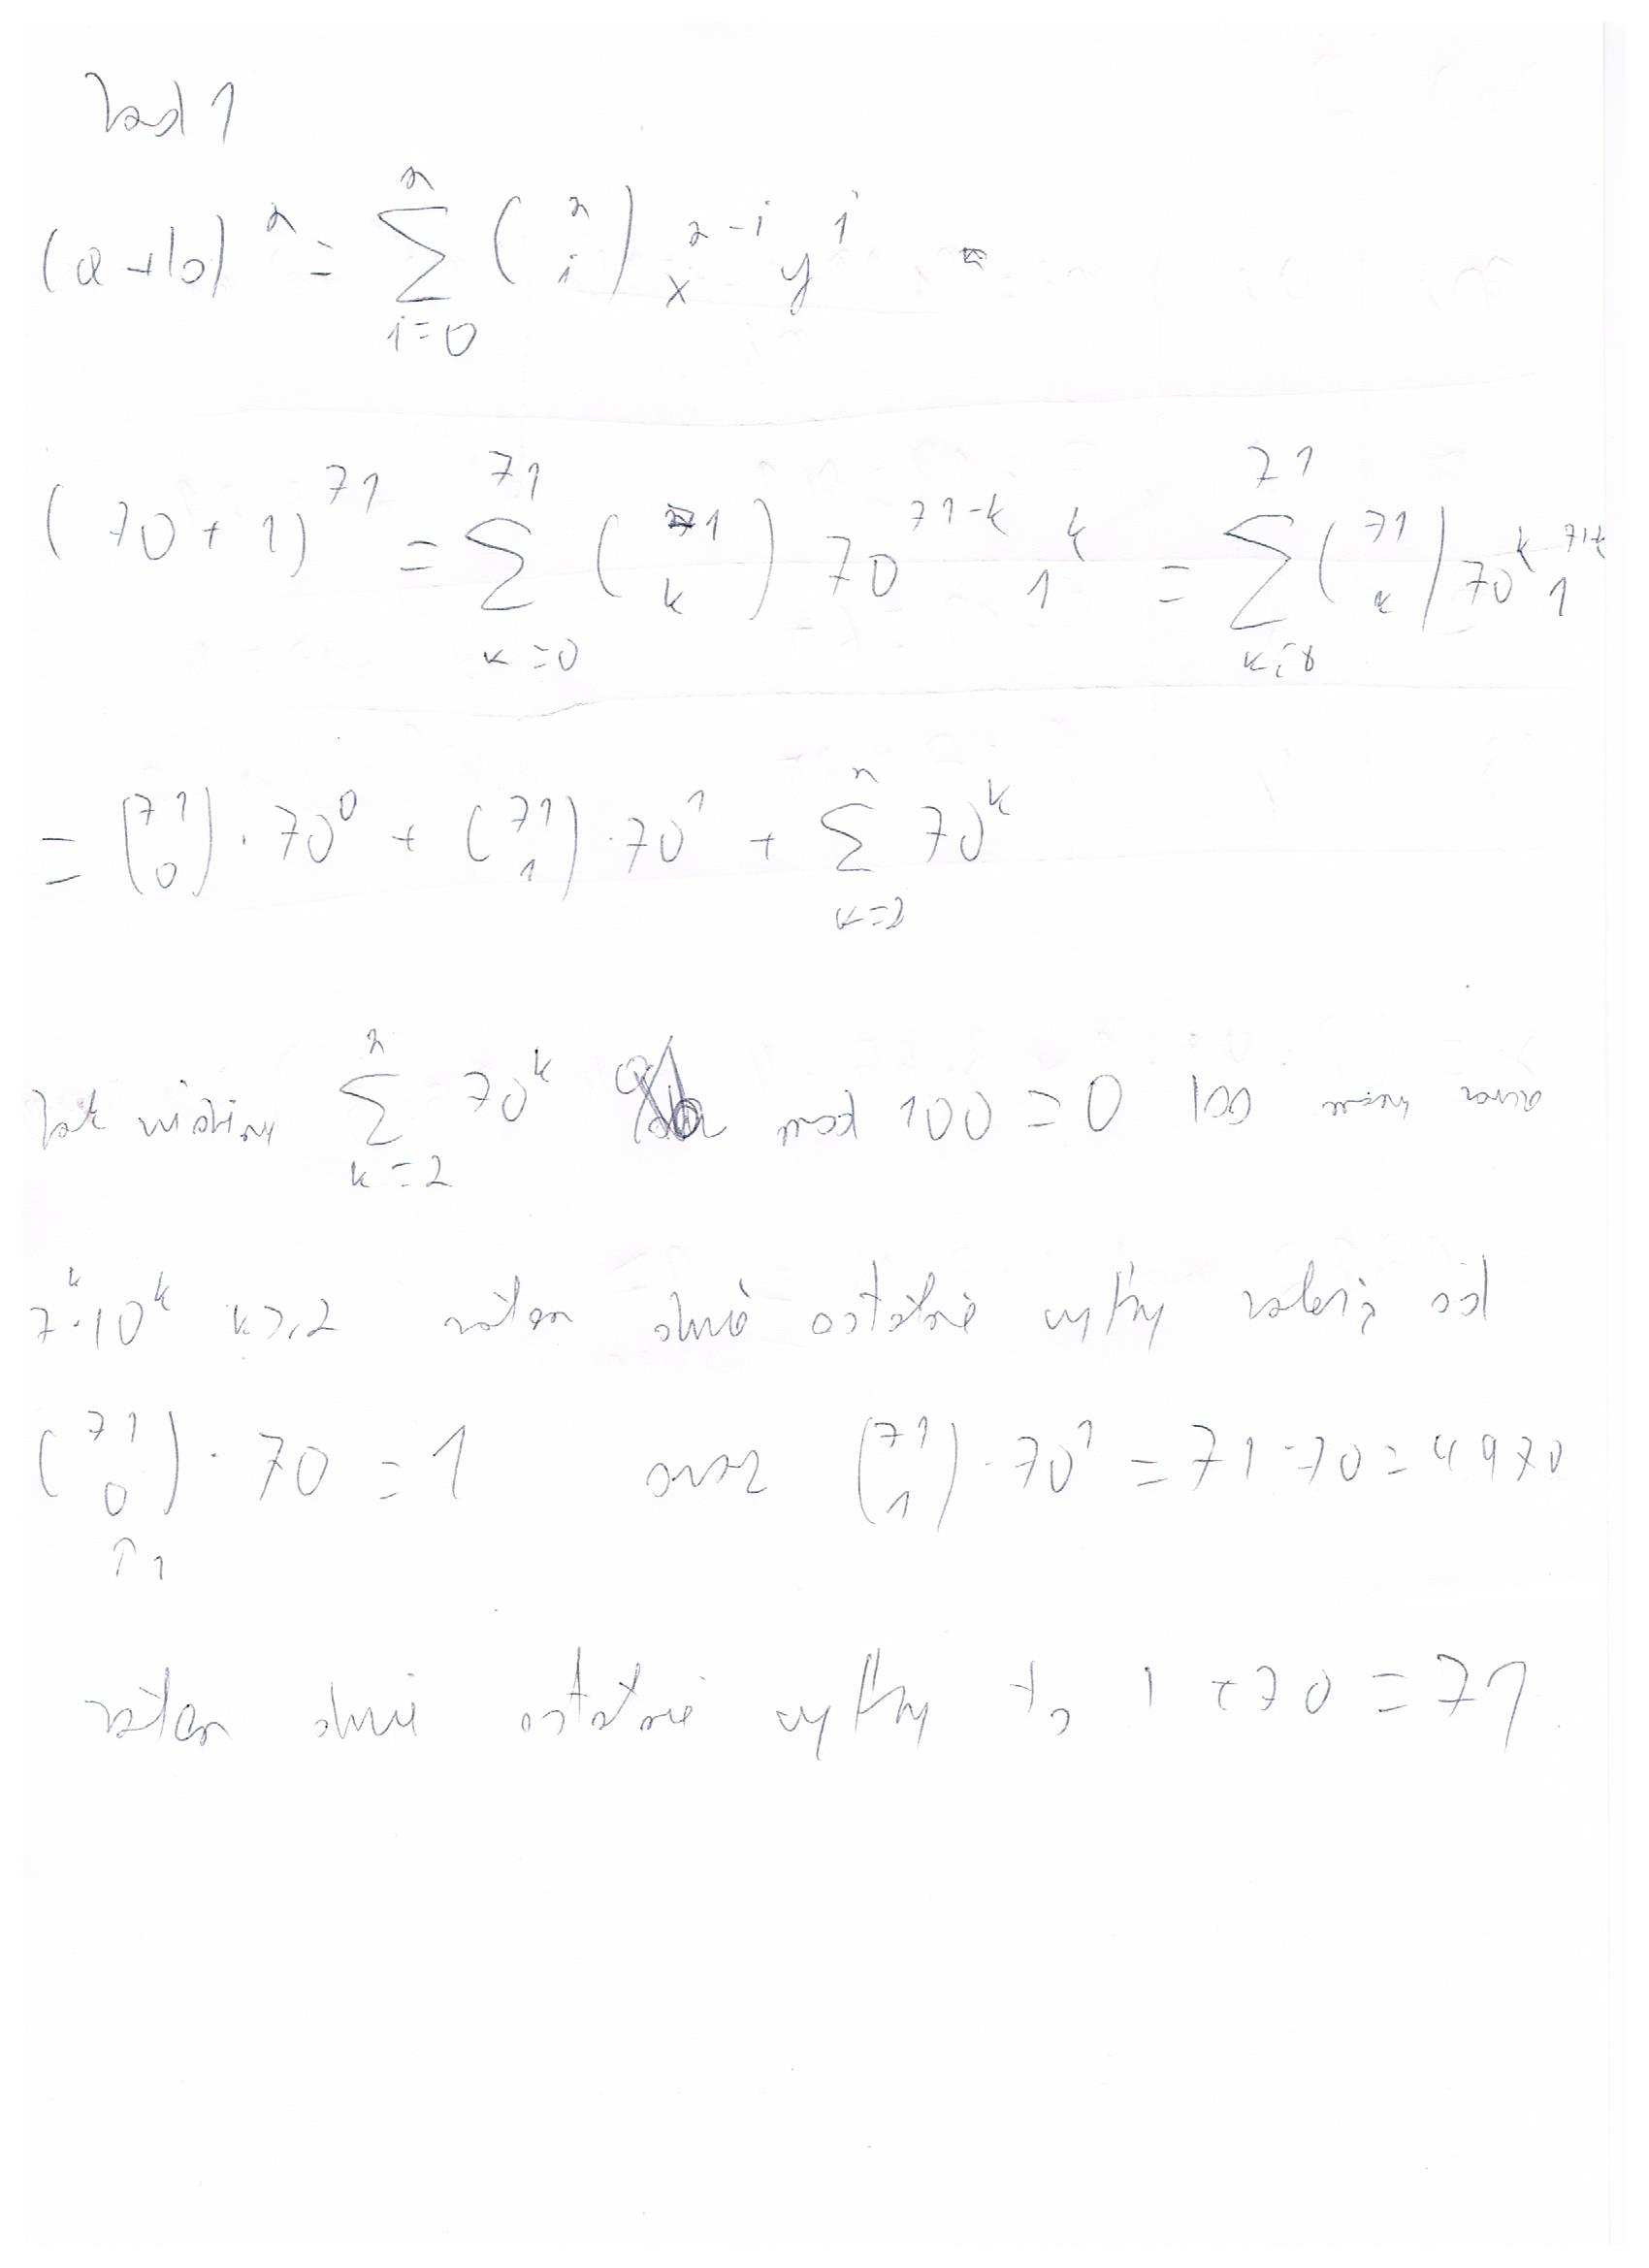 Zad 1
(a+b)^n = \sum_{i=0}^{n} \binom{n}{i} x^{n-i} y^i =
(70+1)^{71} = \sum_{k=0}^{71} \binom{71}{k} 70^{71-k} 1^k = \sum_{k=0}^{71} \binom{71}{k} 70^k 1^{71-k}
= \binom{71}{0} \cdot 70^0 + \binom{71}{1} \cdot 70^1 + \sum_{k=2}^{n} 70^k
Jak widzimy \sum_{k=2}^{n} 70^k mod 100 = 0 bo mamy
7^k \cdot 10^k k \geq 2 zatem dwie ostatnie cyfry zależą od
\binom{71}{0} \cdot 70 = 1 oraz \binom{71}{1} \cdot 70^1 = 71 \cdot 70 = 4970
↑ 1
zatem dwie ostatnie cyfry to 1 + 70 = 71